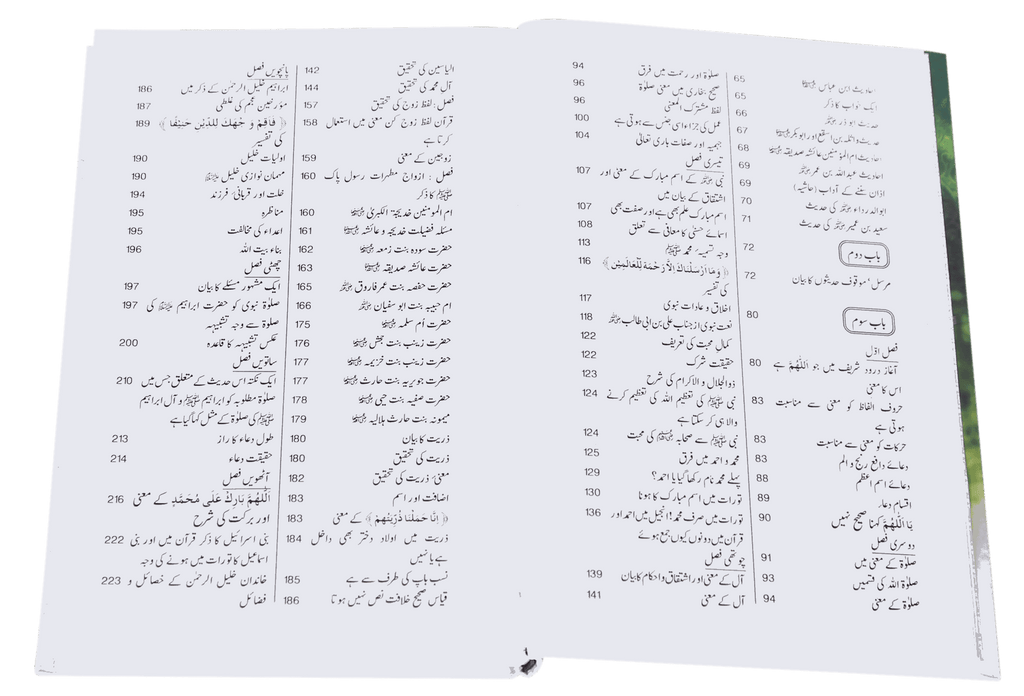 احادیث ابن عباس ﷺ 65
ایک خواب کا ذکر 65
حدیث ابو ذر 66
حدیث واثلہ بن اسقع اور ابو بکر 67
احادیث ام المؤمنین عائشہ صدیقہ 68
احادیث عبد اللہ بن عمر 69
اذان سننے کے آداب (حاشیہ) 69
ابوالدرداء کی حدیث 70
سعید بن عمیر کی حدیث 71
باب دوم 72
مرسل‘ موقوف حدیثوں کا بیان 72
باب سوم 80
فصل اوّل
آغاز درود شریف میں جو اَللّٰهُمَّ ہے 80
اس کا معنی
حروف الفاظ کو معنی سے مناسبت 83
ہوتی ہے
حرکات کو معنی سے مناسبت 83
دعائے دافع رنج و الم 83
دعائے اسم اعظم 88
اقسام دعار 89
یَا اَللّٰهُمَّ کہنا صحیح نہیں 90
دوسری فصل
صلوٰۃ کے معنی میں 91
صلوٰۃ اللہ کی قسمیں 93
صلوٰۃ کے معنی 94
صلوٰۃ اور رحمت میں فرق 94
صحیح بخاری میں معنی صلوٰۃ 96
لفظ مشترک المعنی 96
عمل کی جزاء اسی جنس سے ہوتی ہے 100
جہمیہ اور صفات باری تعالٰی 104
تیسری فصل
نبی ﷺ کے اسم مبارک کے معنی اور 107
اشتقاق کے بیان میں
اسم مبارک علم بھی ہے اور صفت بھی 107
اسمائے حسنٰی کا معانی سے تعلق 108
وجہ تسمیہ محمد ﷺ 113
﴿ وَمَا اَرْسَلْنَاكَ اِلَّا رَحْمَةً لِّلْعَالَمِيْنَ ﴾ 116
کی تفسیر
اخلاق و عادات نبوی 117
نعت نبوی از جناب علی بن ابی طالب 118
کمال محبت کی تعریف 122
حقیقت شرک 122
ذوالجلال و الاکرام کی شرح 123
نبی ﷺ کی تعظیم اللہ کی تعظیم کرنے 124
والا ہی کر سکتا ہے
نبی ﷺ سے صحابہ کی محبت 124
محمد و احمد میں فرق 125
پہلے محمد نام رکھا گیا یا احمد؟ 129
تورات میں اسم مبارک کا ہونا 130
تورات میں صرف محمد‘ انجیل میں احمد اور 136
قرآن میں دونوں کیوں جمع ہوئے
چوتھی فصل
آل کے معنی اور اشتقاق و احکام کا بیان 139
آل کے معنی 141
الیاسین کی تحقیق 142
آل محمد کی تحقیق 144
فصل: لفظ زوج کی تحقیق 157
قرآن لفظ زوج کن معنی میں استعمال 158
کرتا ہے
زوجین کے معنی 159
فصل : ازواج مطہرات رسول پاک 160
ﷺ کا ذکر
ام المؤمنین خدیجۃ الکبریٰ 160
مسئلہ فضیلت خدیجہ و عائشہ 161
حضرت سودہ بنت زمعہ 162
حضرت عائشہ صدیقہ 163
حضرت حفصہ بنت عمر فاروق 165
ام حبیبہ بنت ابو سفیان 166
حضرت اُم سلمہ 175
حضرت زینب بنت جحش 176
حضرت زینب بنت خزیمہ 177
حضرت جویریہ بنت حارث 177
حضرت صفیہ بنت حیی 178
میمونہ بنت حارث ہلالیہ 179
ذریت کا بیان 180
ذریت کی تحقیق 180
معنی: ذریت کی تحقیق 182
اضافت اور اسم 183
﴿ اِنَّا حَمَلْنَا ذُرِّيَّتَهُمْ ﴾ کے معنی 183
ذریت میں اولاد دختر بھی داخل 184
ہے یا نہیں
نسب باپ کی طرف سے ہے 185
قیاس صحیح خلافت نص نہیں ہوتا 186
پانچویں فصل
ابراہیم خلیل الرحمٰن کے ذکر میں 186
مؤرخین عجم کی غلطی 187
﴿ فَاَقِمْ وَ جْهَكَ لِلدِّيْنِ حَنِيْفًا ﴾ 189
کی تفسیر
اولیات خلیل 190
مہمان نوازی خلیل 190
خلت اور قربانی فرزند 194
مناظرہ 195
اعداء کی مخالفت 195
بناء بیت اللہ 196
چھٹی فصل
ایک مشہور مسئلے کا بیان 197
صلوٰۃ نبوی کو حضرت ابراہیم کی 197
صلوٰۃ سے وجہ تشبیہہ
عکس تشبیہہ کا قاعدہ 200
ساتویں فصل
ایک نکتہ اس حدیث کے متعلق جس میں 210
صلوٰۃ مطلوبہ کو ابراہیم ﷺ و آل ابراہیم
ﷺ کی صلوٰۃ کے مثل کہا گیا ہے
طول دعاء کا راز 213
حقیقت دعاء 214
آٹھویں فصل
اَللّٰهُمَّ بَارِكْ عَلٰى مُحَمَّدٍ کے معنی 216
اور برکت کی شرح
بنی اسرائیل کا ذکر قرآن میں اور بنی 222
اسماعیل کا تورات میں ہونے کی وجہ
خاندان خلیل الرحمٰن کے خصائل و 223
فضائل